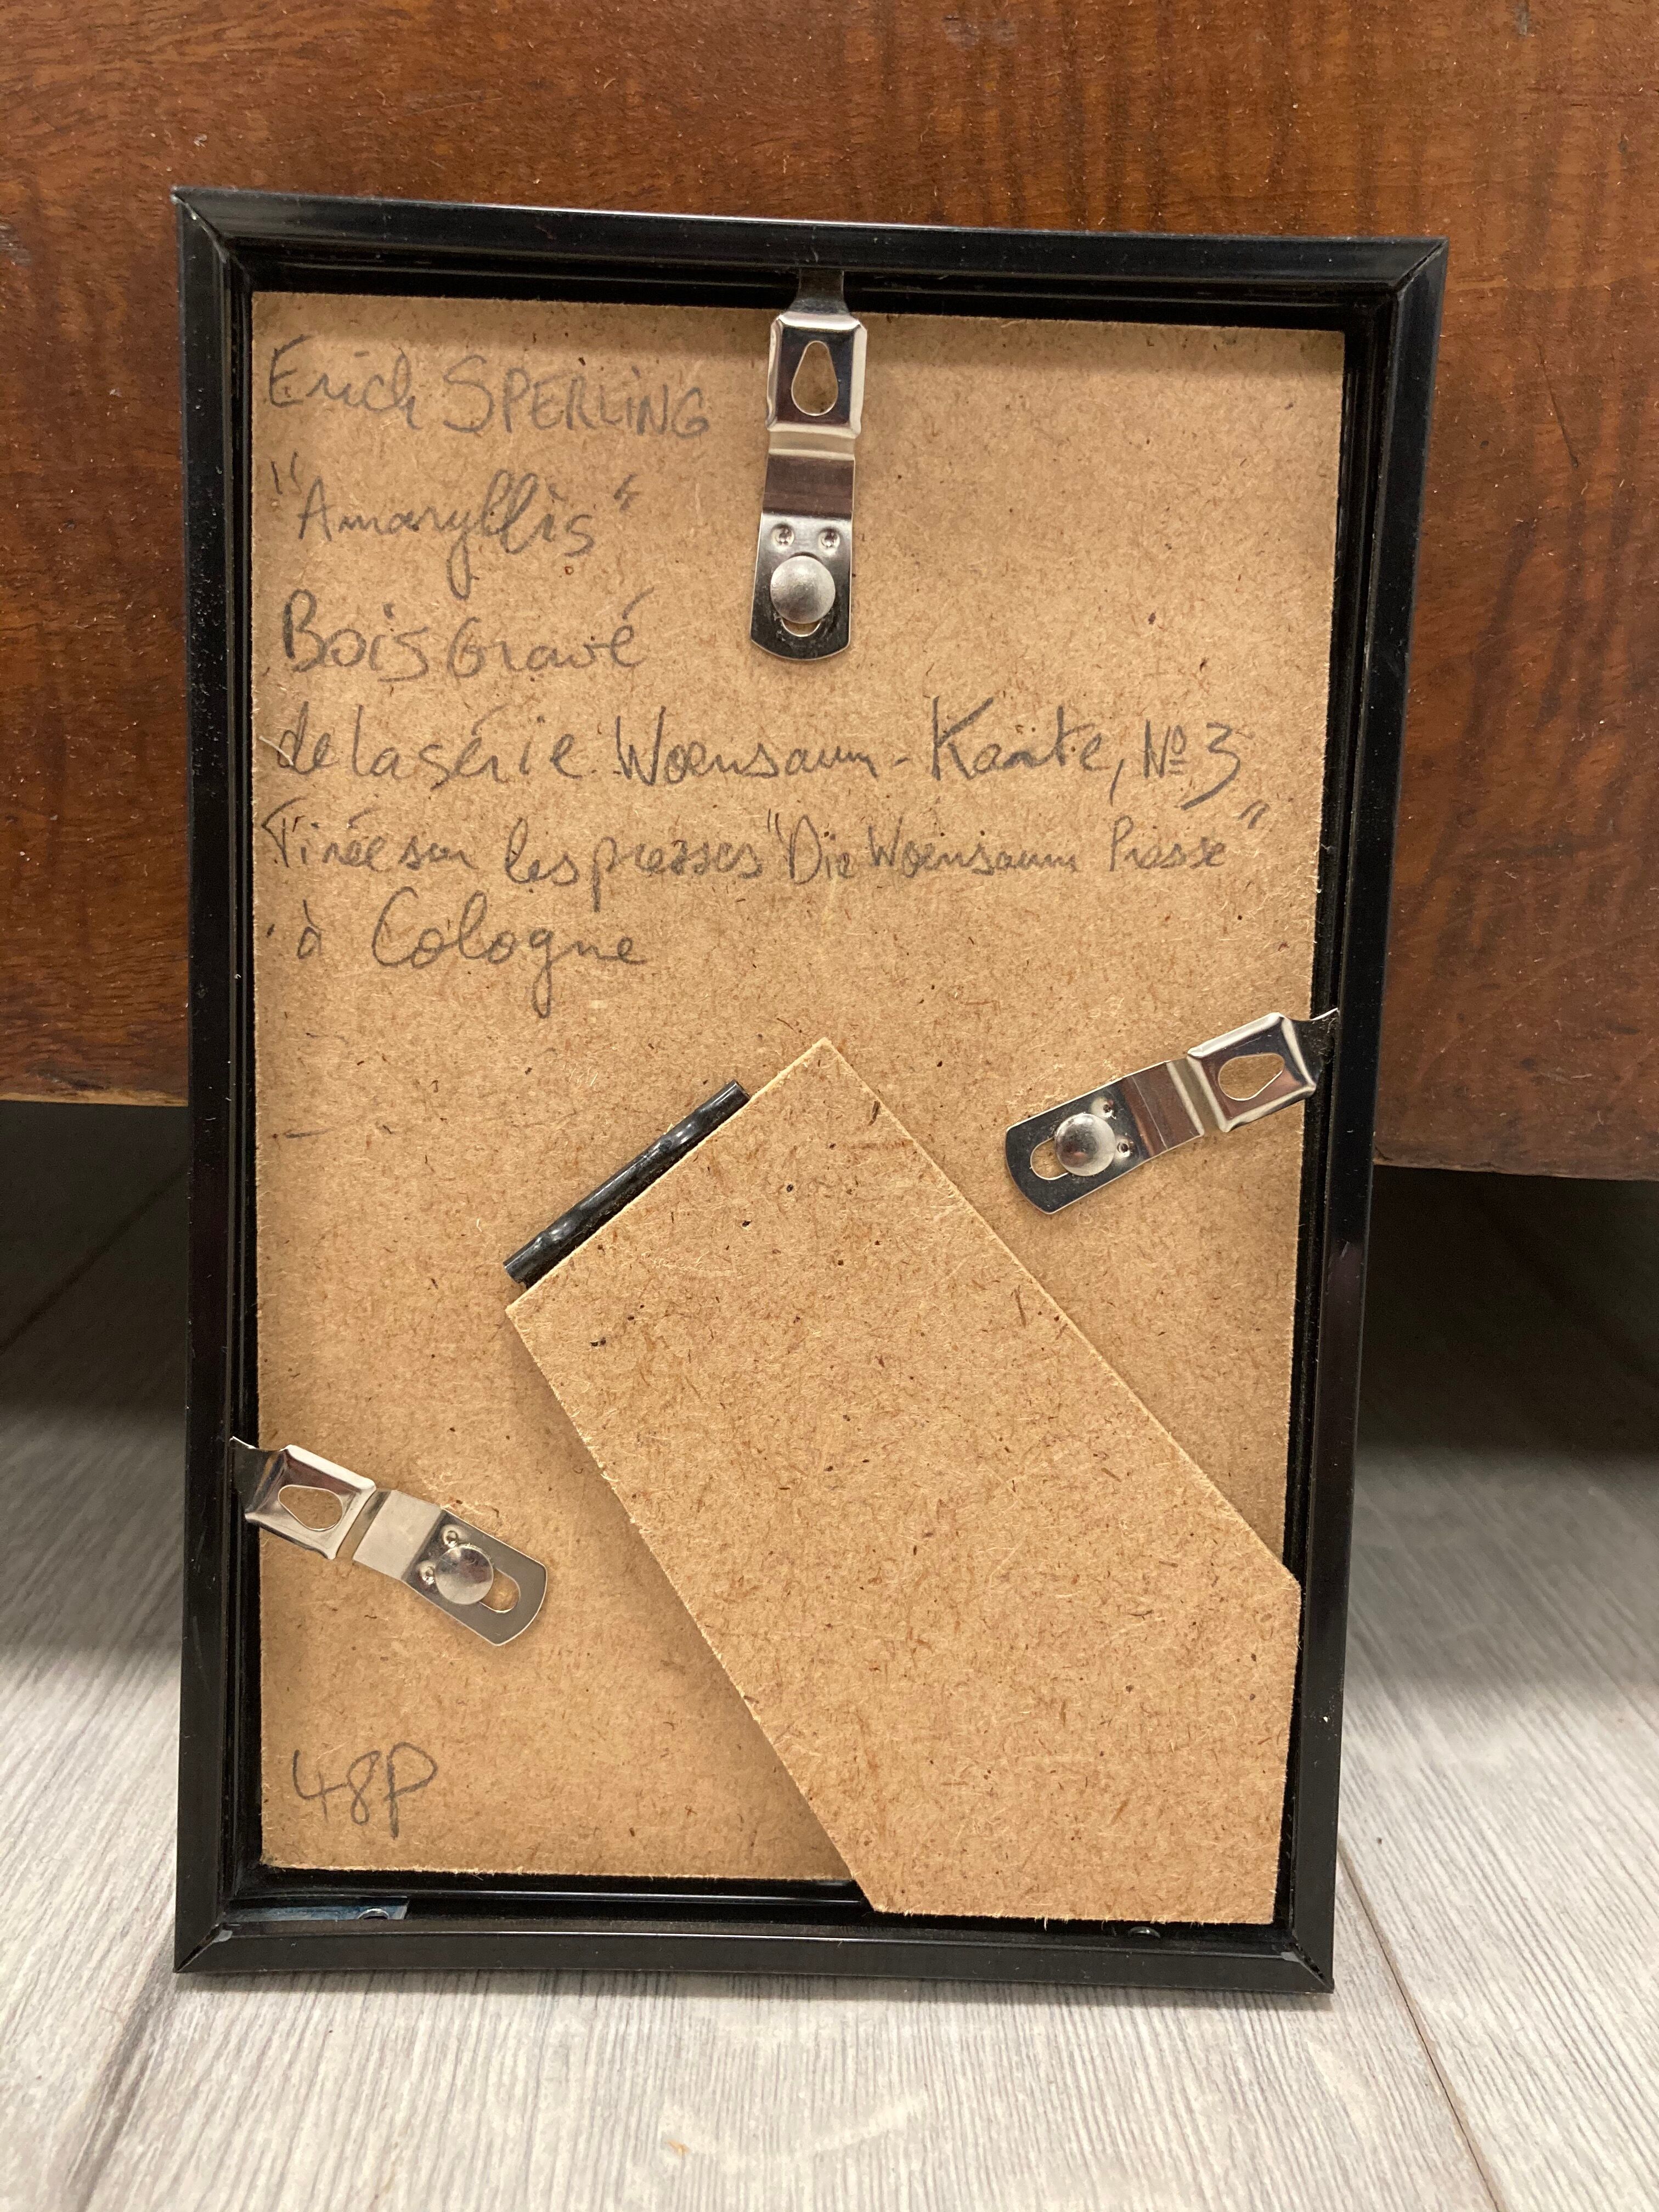 Erich SPERLING
"Amaryllis"
Bois Gravé
de la série Woensaum-Karte, Nº 3
Tirée sur les presses "Die Woensaum Presse"
à Cologne
48P